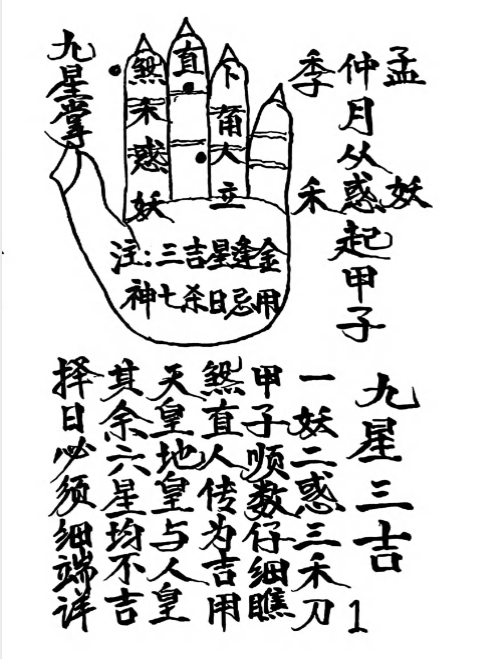 九星掌
煞禾惑妖
直
立
孟 妖
仲月从惑起甲子
季 禾
注:三吉星逢金
神七杀日忌用
九星三吉
一妖二惑三禾刀
甲子顺数仔细瞧
煞直人传为吉用
天皇地皇与人皇
其余六星均不吉
择日必须细端详
1